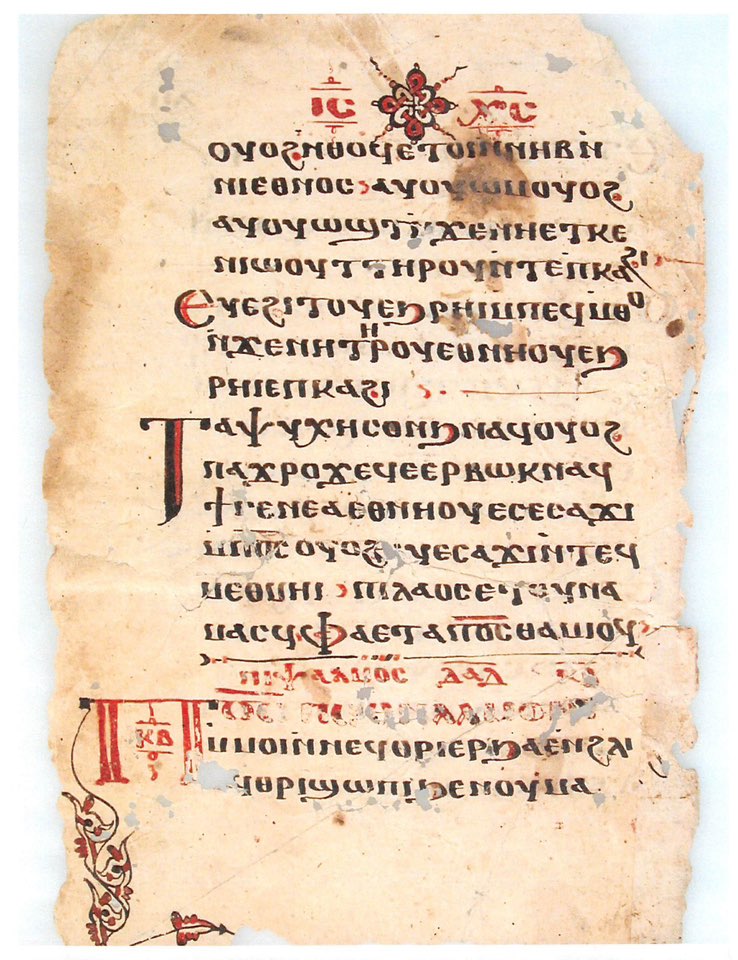 ⲓ̅ⲥ̅ ⲭ̅ⲥ̅
ⲟⲩⲟϩ ⲛⲑⲟϥ ⲉⲧⲟⲓ ⲛⲛⲏⲃ ⲛ̇
ⲛⲓⲉⲑⲛⲟⲥ ⲁⲩⲟⲩⲱⲙ ⲟⲩⲟϩ
ⲁⲩⲟⲩⲱϣⲧ ⲛ̇ϫⲉ ⲛⲏⲉⲧⲕⲉ
ⲛⲓⲱⲟⲩⲧ ⲧⲏⲣⲟⲩ ⲛ̇ⲧⲉ ⲡⲕⲁϩⲓ
Ⲉⲩⲉϩⲓⲧⲟⲩ ⲉϧⲣⲏⲓ ⲙ̇ⲡⲉϥⲙ̇ⲑⲟ
ⲛ̇ϫⲉ ⲛⲏ ⲧⲏⲣⲟⲩ ⲉⲑⲛⲏⲟⲩ ⲉϧ
ⲣⲏⲓ ⲉⲡⲕⲁϩⲓ
Ⲧⲁⲯⲩⲭⲏ ⲥⲟⲛϧ ⲛⲁϥ ⲟⲩⲟϩ
ⲡⲁϫⲣⲟϫ ⲉϥⲉⲉⲣⲃⲱⲕ ⲛⲁϥ
ϯⲅⲉⲛⲉⲁ ⲉⲑⲛⲏⲟⲩ ⲉⲥⲉⲥⲁϫⲓ
ⲙ̇ⲡ̅ⲟ̅ⲥ̅ ⲟⲩⲟϩ ⲉⲩⲉⲥⲁϫⲓ ⲛ̇ⲧⲉϥ
ⲙⲉⲑⲙⲏⲓ ⲡⲓⲗⲁⲟⲥ ⲉⲧⲟⲩⲛⲁ
ⲙⲁⲥϥ ⲫⲁⲉⲧⲁ ⲡ̅ⲟ̅ⲥ̅ ⲑⲁⲙⲓⲟϥ
ⲯⲁⲗⲙⲟⲥ ⲇ̅ⲁ̅ⲇ̅
ⲕ̅ⲃ̅
ⲙ̇ⲙⲟⲓ ⲛ̇ⲛⲉϥⲑⲣⲓⲉⲣϧⲁⲉ ⲛ̇ϩⲗⲓ
ⲁϥⲑⲣⲓϣⲱⲡⲓ ϧⲉⲛ ⲟⲩⲙⲁ